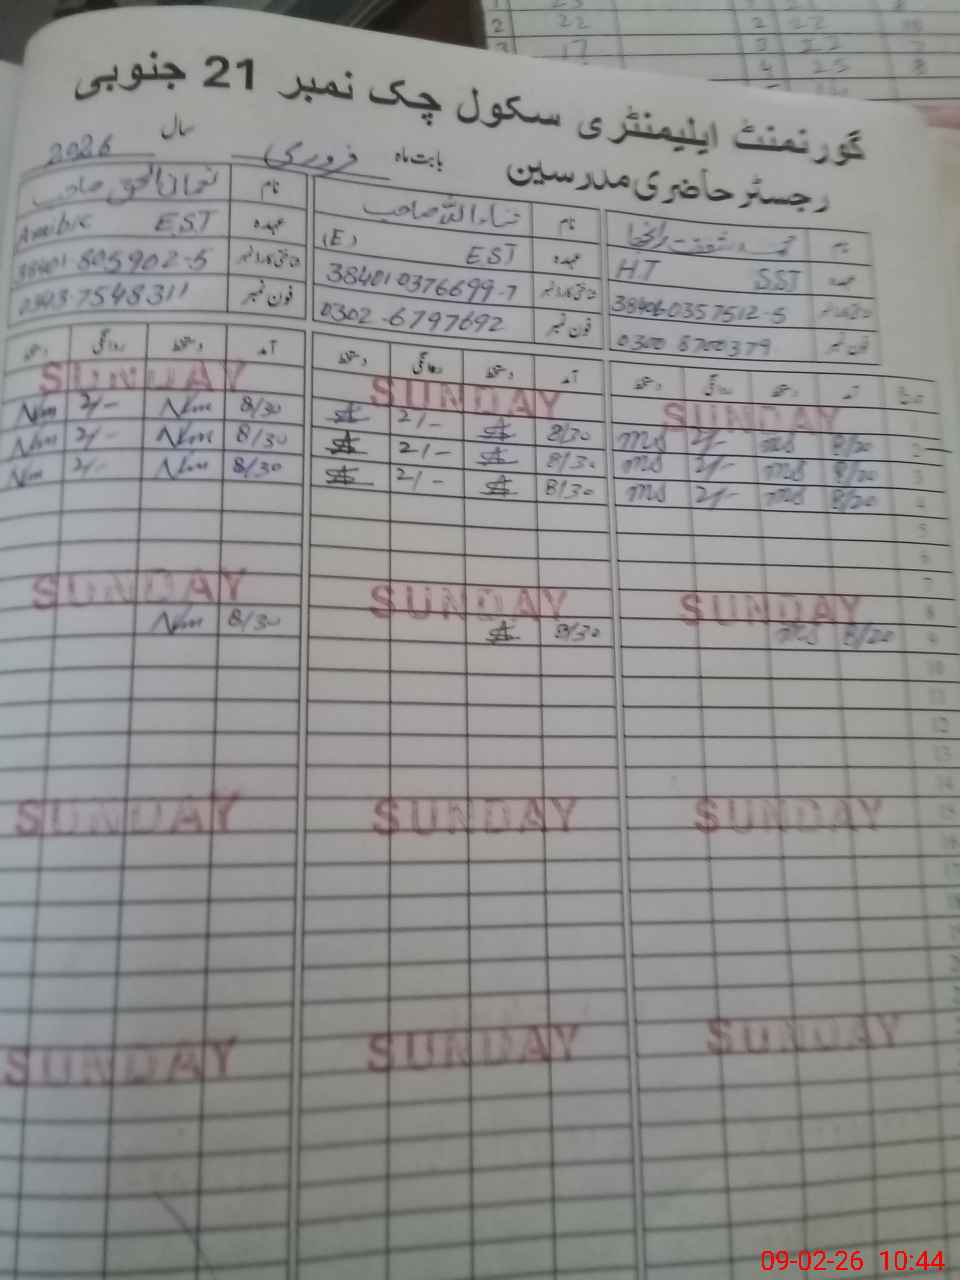 گورنمنٹ ایلیمنٹری سکول چک نمبر 21 جنوبی
رجسٹر حاضری مدرسین بابت ماہ فروری سال 2026
نام
عہدہ H.T SST
38406 0357512-5
فون نمبر 0300 8700379
نام ثناء اللہ صاحب
عہدہ EST (E)
384010376699-7
فون نمبر 0302-6797692
نام نعمان الحق صاحب
عہدہ EST Arabic
38401-805902-5
فون نمبر 0343-7548311
آمد دستخط روانگی دستخط آمد دستخط روانگی دستخط آمد دستخط روانگی دستخط
1 SUNDAY SUNDAY SUNDAY
2 8/20 ms 2/- ms 8/30 2/- 8/30 Nm 2/- Nm
3 8/20 ms 2/- ms 8/30 2/- 8/30 Nm 2/- Nm
4 8/20 ms 2/- ms 8/30 2/- 8/30 Nm 2/- Nm
5
6
7
8 SUNDAY SUNDAY SUNDAY
9 8/20 ms 8/30 8/30 Nm
10
11
12
13
14
15 SUNDAY SUNDAY SUNDAY
16
17
SUNDAY SUNDAY SUNDAY
2 22 2 22
3 17 3 22 7
4 25 8
09-02-26 10:44